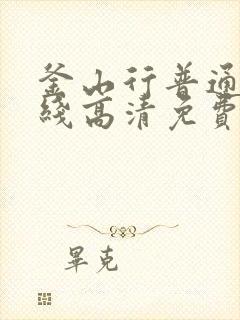 釜山行普通
綫高清免費
畢克